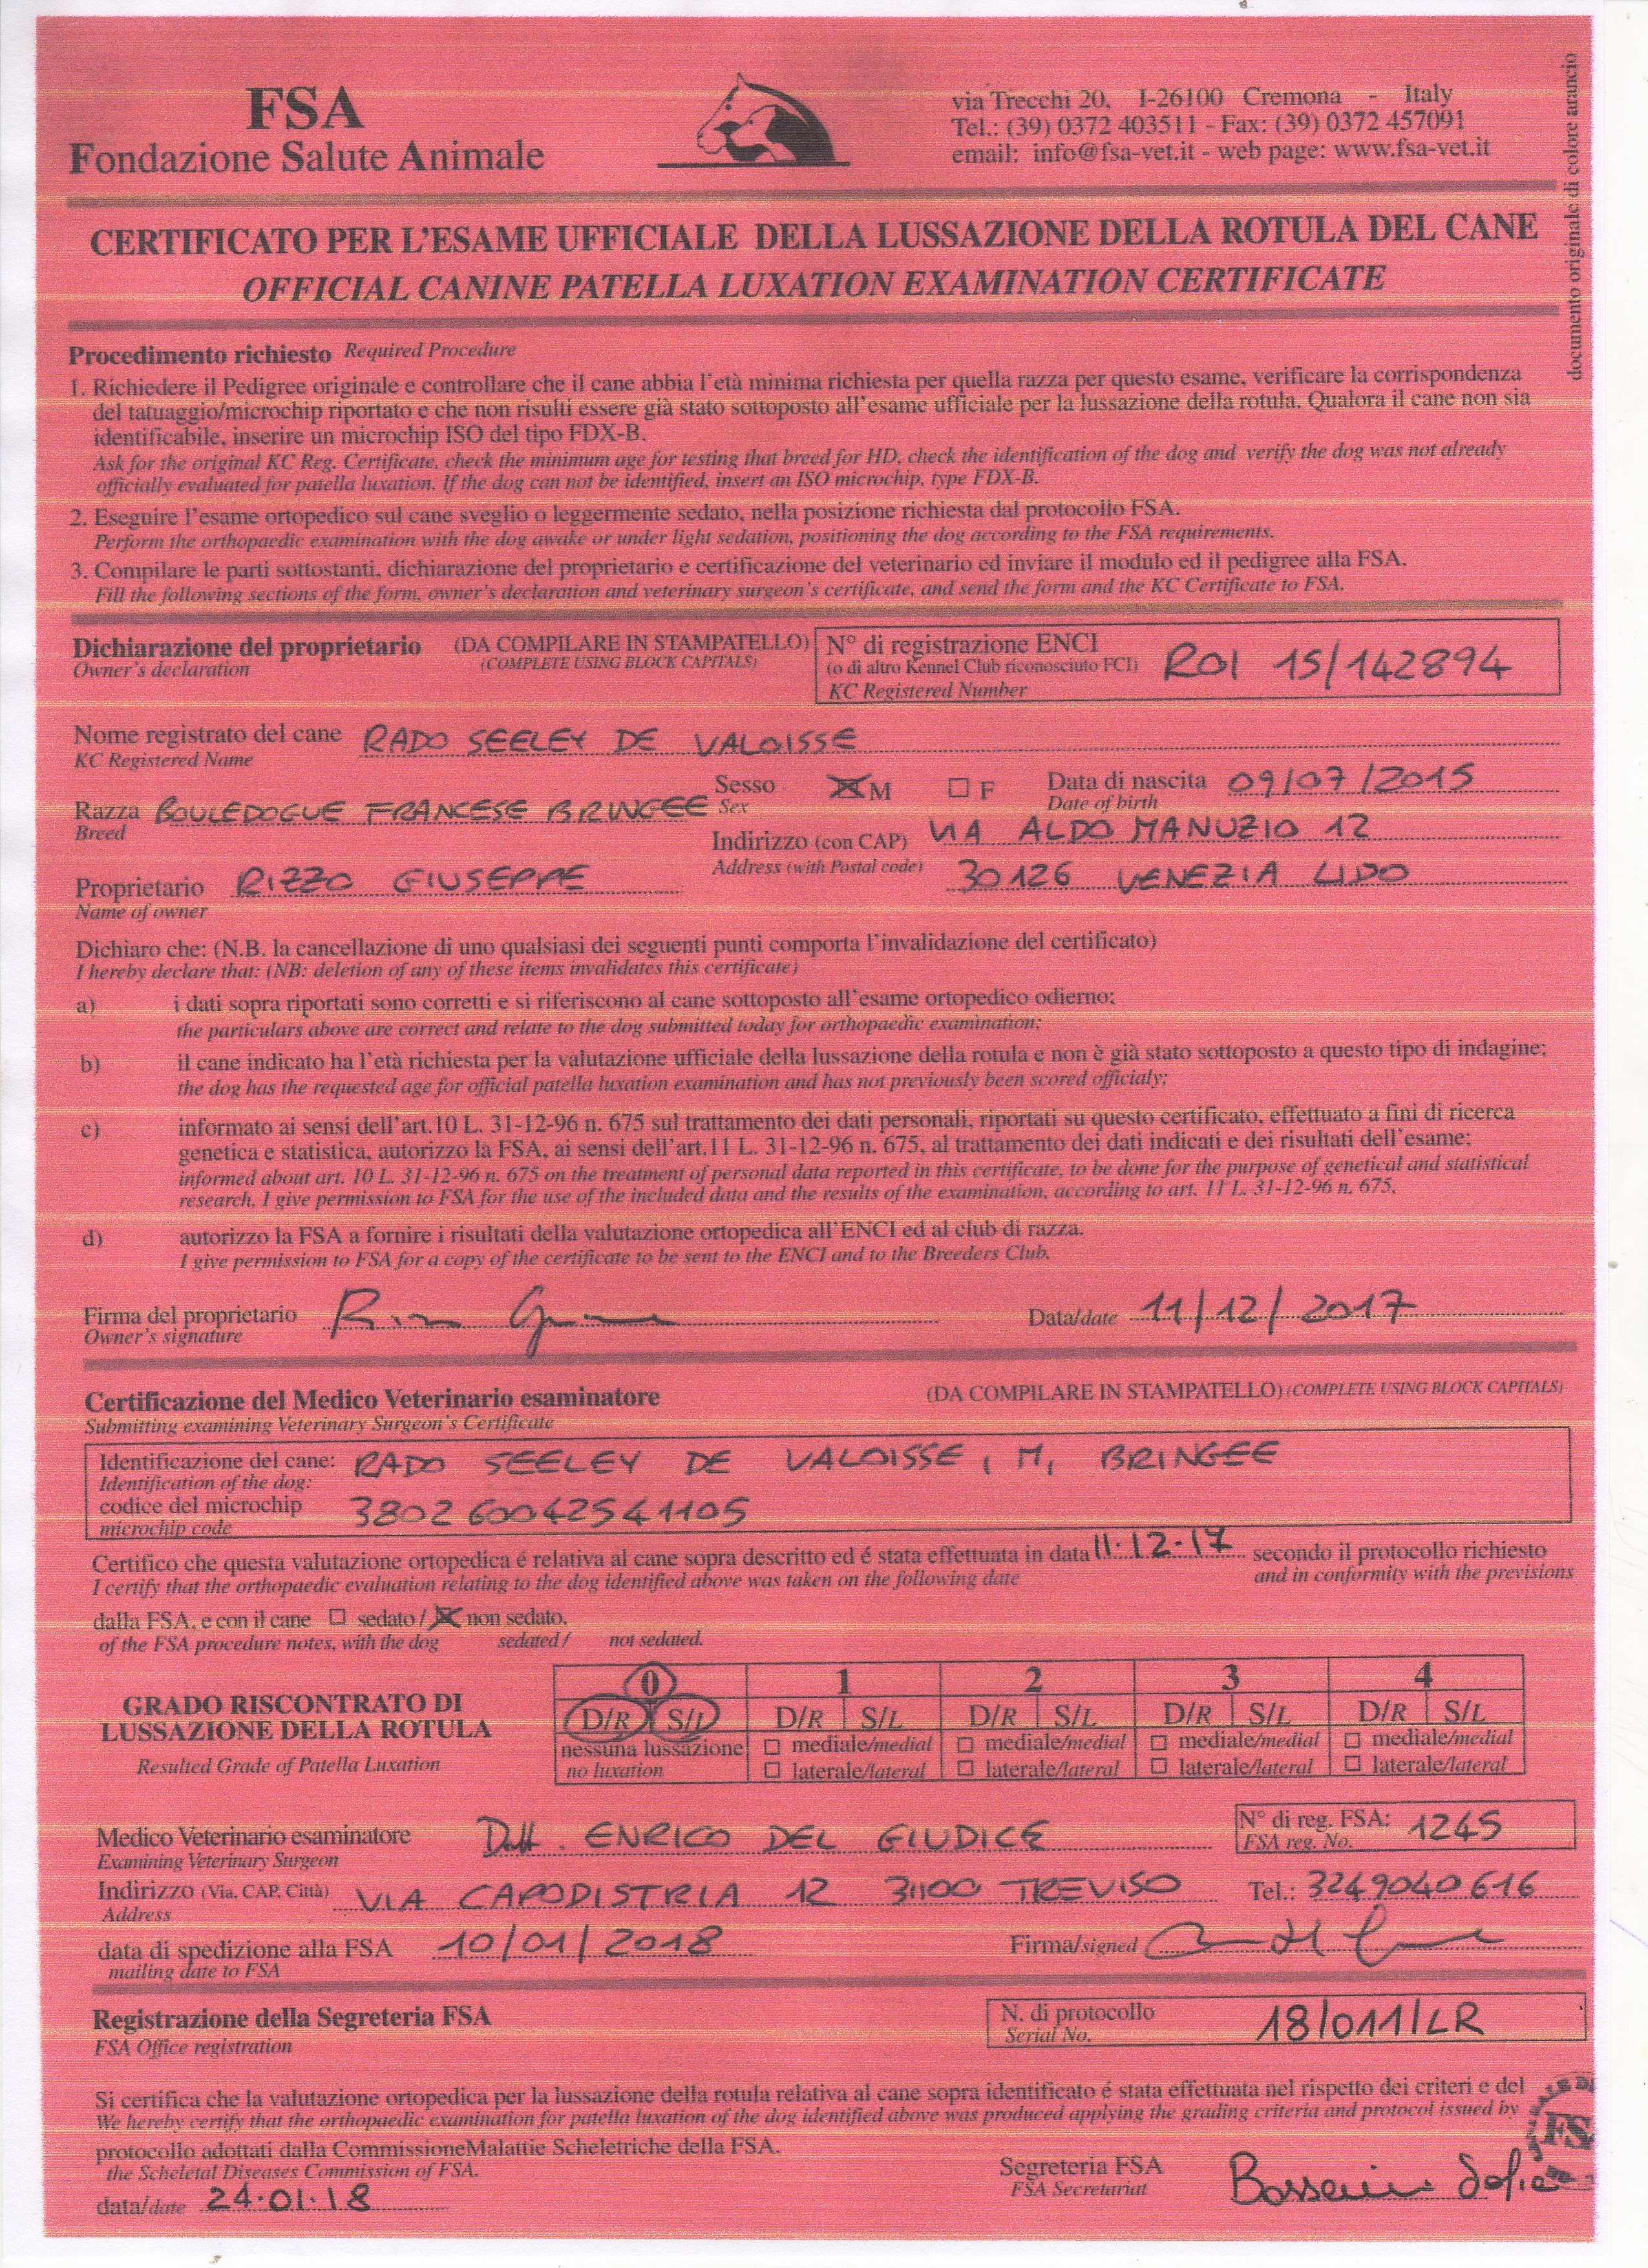 FSA
Fondazione Salute Animale
via Trecchi 20, I-26100 Cremona - Italy
Tel.: (39) 0372 403511 - Fax: (39) 0372 457091
email: info@fsa-vet.it - web page: www.fsa-vet.it
documento originale di colore arancio
CERTIFICATO PER L'ESAME UFFICIALE DELLA LUSSAZIONE DELLA ROTULA DEL CANE
OFFICIAL CANINE PATELLA LUXATION EXAMINATION CERTIFICATE
Procedimento richiesto Required Procedure
1. Richiedere il Pedigree originale e controllare che il cane abbia l'età minima richiesta per quella razza per questo esame, verificare la corrispondenza
del tatuaggio/microchip riportato e che non risulti essere già stato sottoposto all'esame ufficiale per la lussazione della rotula. Qualora il cane non sia
identificabile, inserire un microchip ISO del tipo FDX-B.
Ask for the original KC Reg. Certificate, check the minimum age for testing that breed for HD, check the identification of the dog and verify the dog was not already
officially evaluated for patella luxation. If the dog can not be identified, insert an ISO microchip, type FDX-B.
2. Eseguire l'esame ortopedico sul cane sveglio o leggermente sedato, nella posizione richiesta dal protocollo FSA.
Perform the orthopaedic examination with the dog awake or under light sedation, positioning the dog according to the FSA requirements.
3. Compilare le parti sottostanti, dichiarazione del proprietario e certificazione del veterinario ed inviare il modulo ed il pedigree alla FSA.
Fill the following sections of the form, owner's declaration and veterinary surgeon's certificate, and send the form and the KC Certificate to FSA.
Dichiarazione del proprietario (DA COMPILARE IN STAMPATELLO)
Owner's declaration (COMPLETE USING BLOCK CAPITALS)
N° di registrazione ENCI
(o di altro Kennel Club riconosciuto FCI) ROI 15/142894
KC Registered Number
Nome registrato del cane RADO SEELEY DE VALOISSE
KC Registered Name
Razza BOULEDOGUE FRANCESE BRINGEE
Breed
Sesso M F
Sex
Data di nascita 09/07/2015
Date of birth
Indirizzo (con CAP) VIA ALDO MANUZIO 12
Address (with Postal code) 30126 VENEZIA LIDO
Proprietario RIZZO GIUSEPPE
Name of owner
Dichiaro che: (N.B. la cancellazione di uno qualsiasi dei seguenti punti comporta l'invalidazione del certificato)
I hereby declare that: (NB: deletion of any of these items invalidates this certificate)
a) i dati sopra riportati sono corretti e si riferiscono al cane sottoposto all'esame ortopedico odierno;
the particulars above are correct and relate to the dog submitted today for orthopaedic examination;
b) il cane indicato ha l'età richiesta per la valutazione ufficiale della lussazione della rotula e non è già stato sottoposto a questo tipo di indagine;
the dog has the requested age for official patella luxation examination and has not previously been scored officialy;
c) informato ai sensi dell'art.10 L. 31-12-96 n. 675 sul trattamento dei dati personali, riportati su questo certificato, effettuato a fini di ricerca
genetica e statistica, autorizzo la FSA, ai sensi dell'art.11 L. 31-12-96 n. 675, al trattamento dei dati indicati e dei risultati dell'esame;
informed about art. 10 L. 31-12-96 n. 675 on the treatment of personal data reported in this certificate, to be done for the purpose of genetical and statistical
research, I give permission to FSA for the use of the included data and the results of the examination, according to art. 11 L. 31-12-96 n. 675,
d) autorizzo la FSA a fornire i risultati della valutazione ortopedica all'ENCI ed al club di razza.
I give permission to FSA for a copy of the certificate to be sent to the ENCI and to the Breeders Club.
Firma del proprietario
Owner's signature
Data/date 11/12/2017
Certificazione del Medico Veterinario esaminatore (DA COMPILARE IN STAMPATELLO) (COMPLETE USING BLOCK CAPITALS)
Submitting examining Veterinary Surgeon's Certificate
Identificazione del cane: RADO SEELEY DE VALOISSE, M, BRINGEE
Identification of the dog:
codice del microchip 380260042541105
microchip code
Certifico che questa valutazione ortopedica é relativa al cane sopra descritto ed é stata effettuata in data 11.12.17 secondo il protocollo richiesto
I certify that the orthopaedic evaluation relating to the dog identified above was taken on the following date and in conformity with the previsions
dalla FSA, e con il cane sedato / non sedato.
of the FSA procedure notes, with the dog sedated / not sedated.
GRADO RISCONTRATO DI
LUSSAZIONE DELLA ROTULA
Resulted Grade of Patella Luxation
0 1 2 3 4
D/R S/L D/R S/L D/R S/L D/R S/L D/R S/L
nessuna lussazione mediale/medial mediale/medial mediale/medial mediale/medial
no luxation laterale/lateral laterale/lateral laterale/lateral laterale/lateral
Medico Veterinario esaminatore Dott. ENRICO DEL GIUDICE
Examining Veterinary Surgeon
N° di reg. FSA: 1245
FSA reg. No.
Indirizzo (Via, CAP, Città) VIA CAPODISTRIA 12 31100 TREVISO Tel.: 3249040616
Address
data di spedizione alla FSA 10/01/2018 Firma/signed
mailing date to FSA
Registrazione della Segreteria FSA
FSA Office registration
N. di protocollo 18/011/LR
Serial No.
Si certifica che la valutazione ortopedica per la lussazione della rotula relativa al cane sopra identificato é stata effettuata nel rispetto dei criteri e del
We hereby certify that the orthopaedic examination for patella luxation of the dog identified above was produced applying the grading criteria and protocol issued by
protocollo adottati dalla CommissioneMalattie Scheletriche della FSA.
the Scheletal Diseases Commission of FSA.
Segreteria FSA
FSA Secretariat
data/date 24.01.18